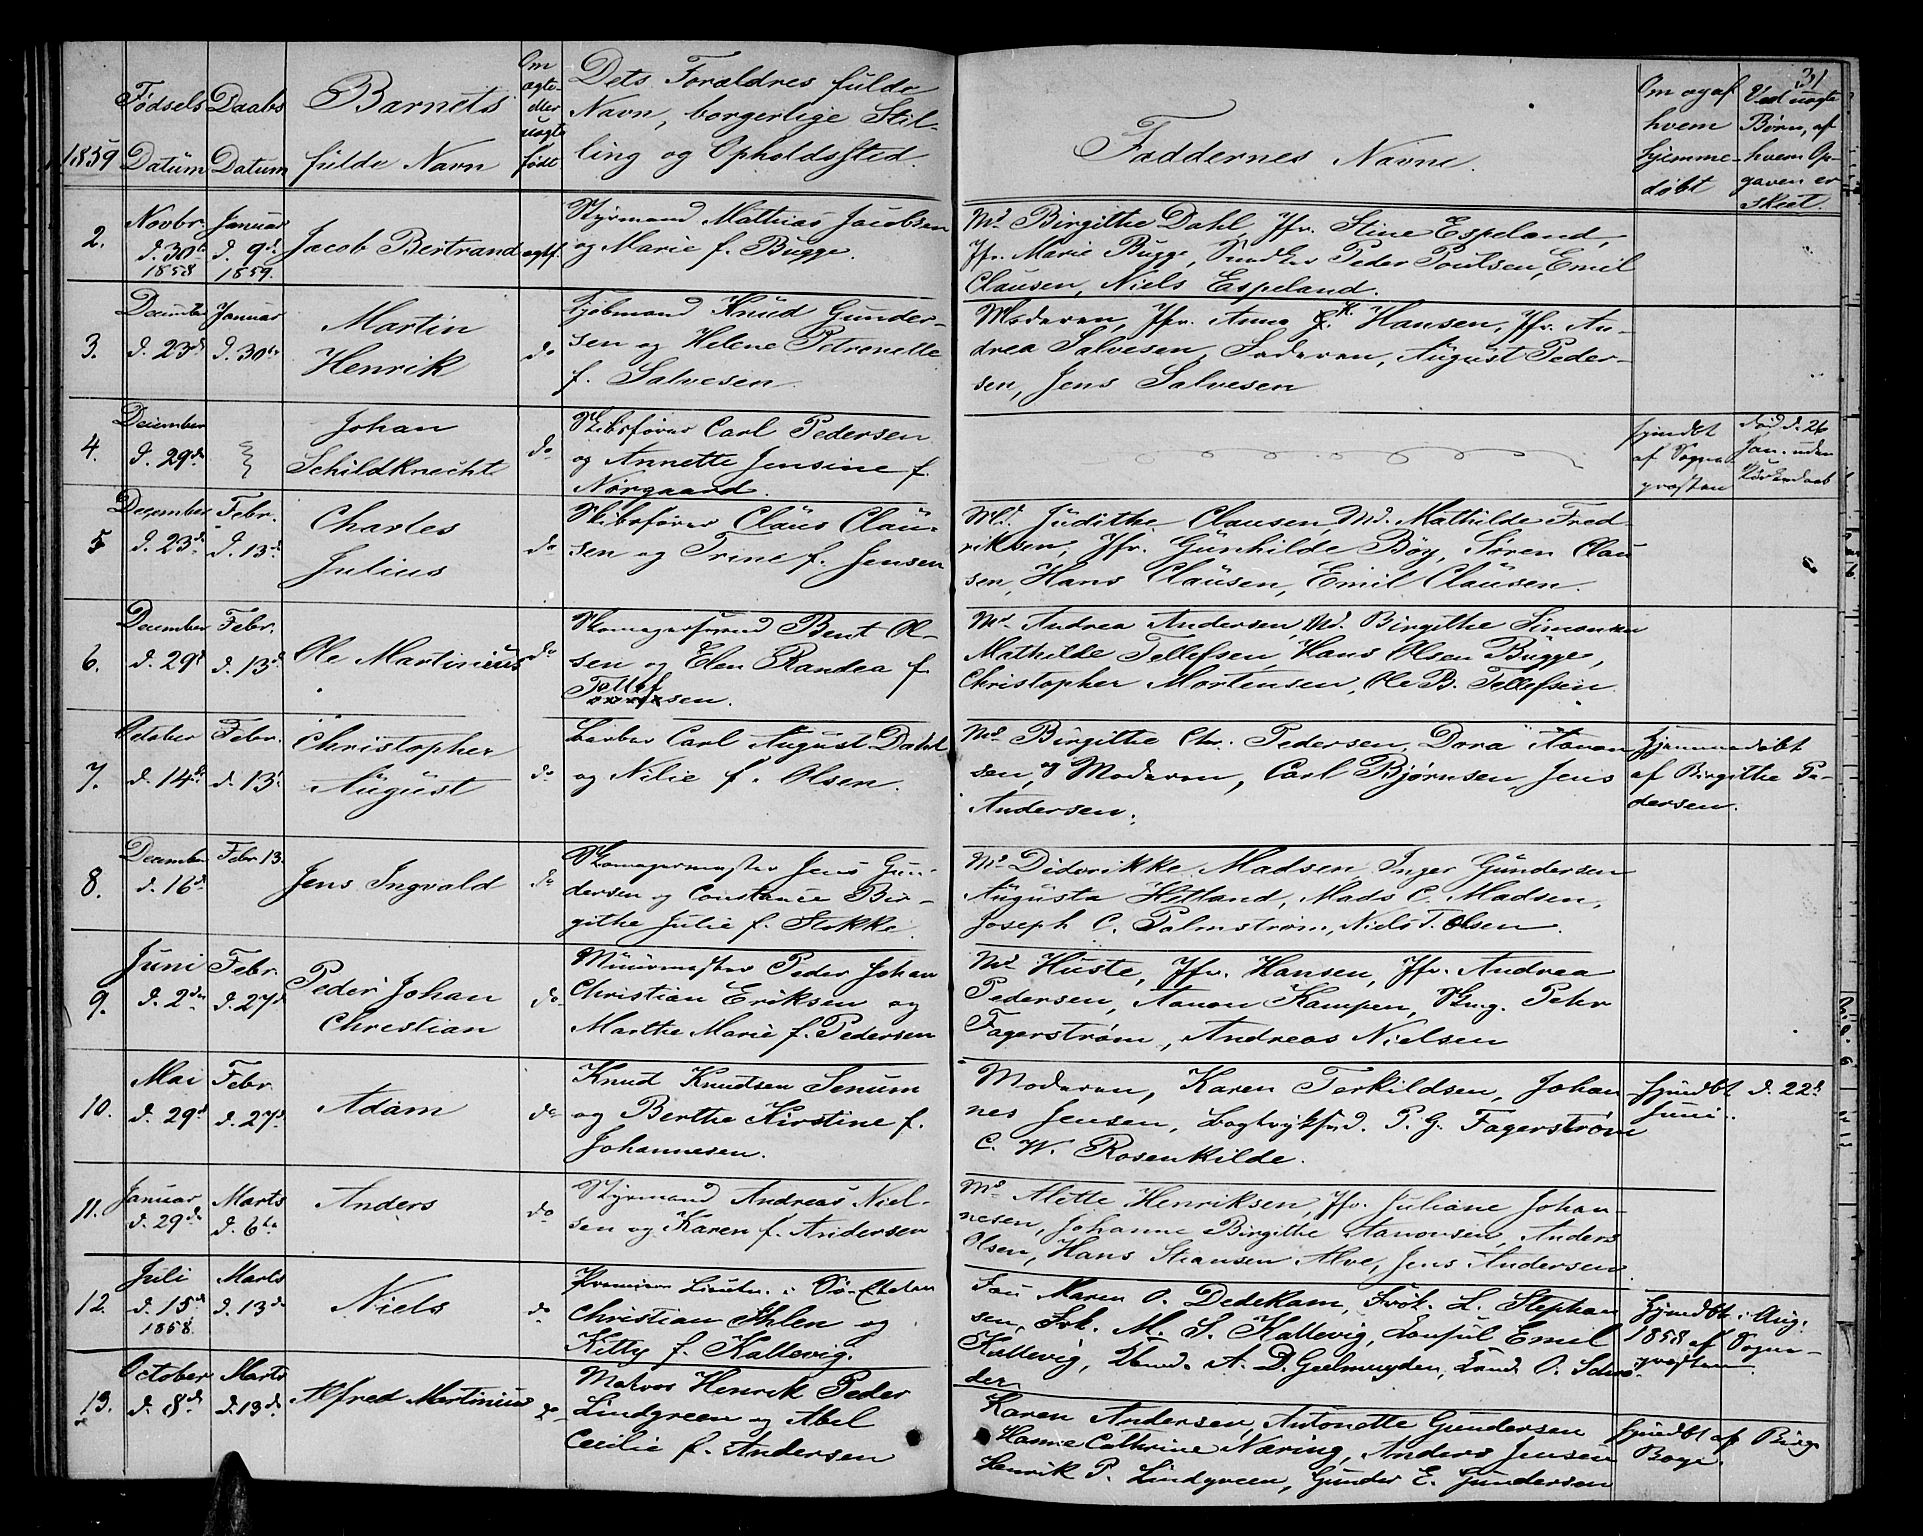 31
1859
Fødsels Datum
Daabs Datum
Barnets fulde Navn
Om ægte eller uægte født
Dets Forældres fulde
Navn, borgerlige Stil-
ling og Opholdssted.
Faddernes Navne.
Om og af hvem hjemmedøbt
Ved uægte Børn, af hvem Opgaven er skeet.
2.
Novbr. d. 30te 1858
Januar d. 9de 1859.
Jacob Bertrand
ægtef.
Styrmand Mathias Jacobsen
og Marie f. Bugge.
Md. Birgithe Dahl, Jfr. Stine Espeland,
Jfr. Marie Bugge, Peder Poulsen, Emil
Clausen, Niels Espeland.
3.
December d. 23d
Januar d. 30te
Martin
Henrik
do
Knud Gunder-
sen og Helene Petronelle
f. Salvesen
Moderen, Jfr. Anna K. Hansen, Jfr. An-
drea Salvesen, Faderen, August Peder-
sen, Jens Salvesen
4.
December d. 29de
Johan
Schildknecht
do
Skibsfører Carl Pedersen
og Annette Jensine f.
Nørgaard.
hjemdøbt
af Sogne-
præsten
Død d. 26
Jan. uden
5
December d. 23de
Febr. d. 13de
Charles
Julius
do
Skibsfører Claus Clau-
sen og Trine f. Jensen
Md. Judithe Clausen, Md. Mathilde Fred-
riksen, Jfr. Gunhilde Bøy, Søren Clau-
sen, Hans Clausen, Emil Clausen.
6.
December d. 29d
Febr. d. 13de
Ole Martinius
do
Skomagersvend Bent Ol-
sen og Elen Randea f.
Tellefsen.
Md. Andrea Andersen, Md. Birgithe Simonsen
Mathilde Tellefsen, Hans Olsen Bugge,
Christopher Mortensen, Ole B. Tellefsen.
7.
October d. 14de
Febr. d. 13d
Christopher
August
do
Carl August Dahl
og Nilie f. Olsen.
Md. Birgithe Chr. Pedersen, Dora Aanon-
sen, og Moderen, Carl Bjørnsen, Jens
Andersen.
Hjemmedøbt
af Birgithe Pe-
dersen.
8.
December d. 16de
Febr. 13.
Jens Ingvald
do
Skomagermester Jens Gun-
dersen og Constance Bir-
githe Julie f. Stokke.
Md. Diderikke Madsen, Inger Gundersen
Augusta Hetland, Mads C. Madsen,
Joseph C. Palmstrøm, Niels T. Olsen.
9.
Juni d. 2den
Febr. d. 27de
Peder Johan
Christian
do
Muurmester Peder Johan
Christian Eriksen og
Marthe Marie f. Pedersen
Md. Huste, Jfr. Hansen, Jfr. Andrea
Pedersen, Aanon Kampen, Petr
Fagerstrøm, Andreas Nielsen
10.
Mai d. 29d
Febr. d. 27de
Adam
do
Knud Knudsen Senum
og Berthe Kirstine f.
Johannesen.
Moderen, Karen Terkildsen, Johan-
nes Jensen, P. G. Fagerstrøm
C. W. Rosenkilde.
hjemdøbt d. 22d
Juni.
11.
Januar d. 29de
Marts d. 6te
Anders
do
Styrmand Andreas Niel-
sen og Karen f. Andersen
Md. Alette Henriksen, Jfr. Juliane Johan-
nesen, Johanne Birgithe Aanonsen, Anders
Olsen, Hans Stiansen Alve, Jens Andersen.
12.
Juli d. 15de 1858.
Marts d. 13de
Niels
do
Premier Lieutn. i Sø-Etaten
Christian Ihlen og
Kitty f. Kallevig.
Fru Maren O. Dedekam, Frøk. L. Stephan-
sen, Frk. M. S. Kallevig, Consul Emil
Kallevig, A. D. Geelmuyden,
Hjemdøbt i Aug.
1858 af Sogne-
præsten.
13.
October d. 8de
Marts d. 13de
Alfred Martinius
do
Matros Henrik Peder
Lindgreen og Abel
Cecilie f. Andersen
Karen Andersen, Antonette Gundersen
Hanne Cathrine Næring, Anders Jensen
Henrik P. Lindgreen, Gunder E. Gundersen
hjemdøbt af Birg.
Boye.